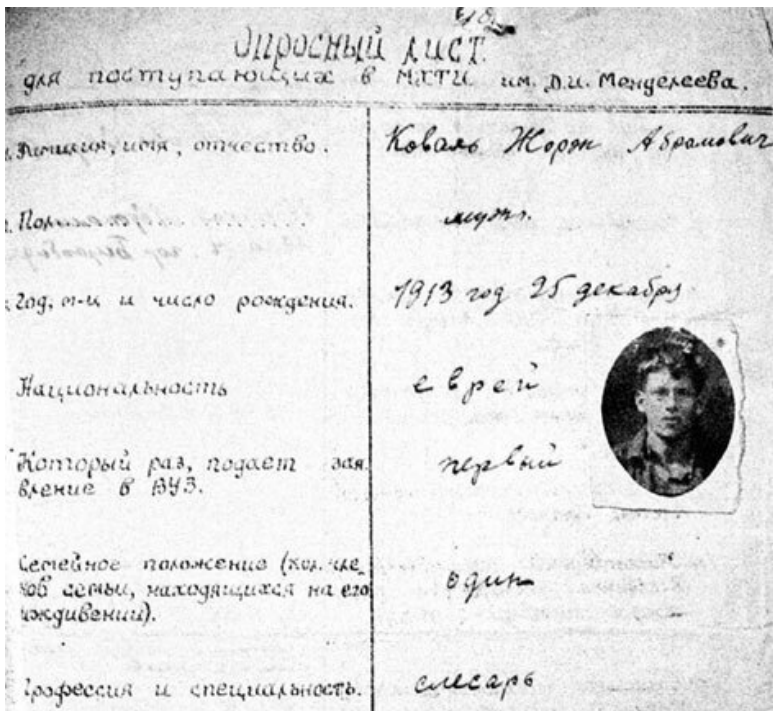 Опросный лист.
для поступающих в МХТИ им. Д.И. Менделеева.
Фамилия, имя, отчество. Коваль Жорж Абрамович
Пол. мужч.
Год, м-ц и число рождения. 1913 год 25 декабря
Национальность еврей
Который раз, подает зая-
вление в ВУЗ. первый
Семейное положение (кол. чле-
нов семьи, находящихся на его
иждивении). один
Профессия и специальность. слесарь